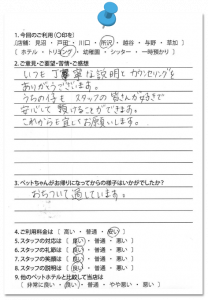 1.今回のご利用(○印を)
[店舗: 見沼 ・ 戸田 ・ 川口 ・ 所沢 ・ 越谷 ・ 与野 ・ 草加 ]
[ ホテル ・ トリミング ・ 幼稚園 ・ シッター ・ 一時預かり ]
2.ご意見・ご要望・苦情・ご感想
いつも丁寧な説明とカウンセリングを
ありがとうございます。
うちの仔も スタッフの皆さんが好きで
安心して預けることができます。
これからも宜しくお願いします。
3.ペットちゃんがお帰りになってからの様子はいかがでしたか?
おちついて過しています。
4.ご利用料金は [ 高い ・ 普通 ・ 安い ]
5.スタッフの対応は [ 良い ・ 普通 ・ 悪い ]
6.スタッフの礼節は [ 良い ・ 普通 ・ 悪い ]
7.スタッフの笑顔は [ 良い ・ 普通 ・ 悪い ]
8.スタッフの説明は [ 良い ・ 普通 ・ 悪い ]
9.他のペットホテルと比較して当店は
[ 非常に良い ・ 良い ・ 普通 ・ やや悪い ・ 悪い ]